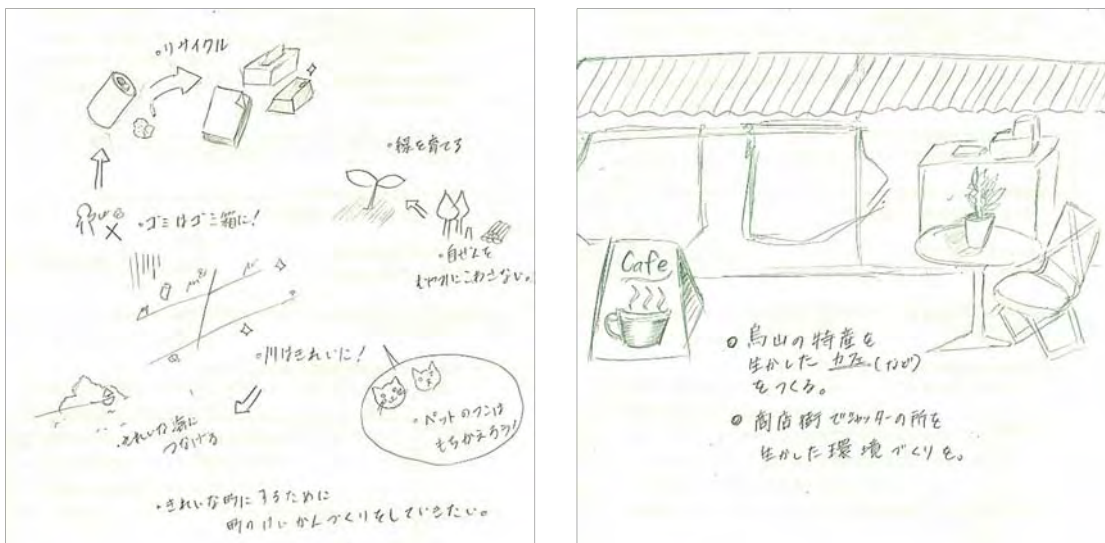 ・リサイクル
・緑を育てる
・ゴミはゴミ箱に!
・自ぜんを
むやみにこわさない。
・川はきれいに!
・ペットのフンは
もちかえろう!
・きれいな海に
つなげる
・きれいな町にするために
町のけいかんづくりをしていきたい。
Cafe
烏山の特産を
生かしたカフェ(など)
をつくる。
商店街でシャッターの所を
生かした環境づくりを。